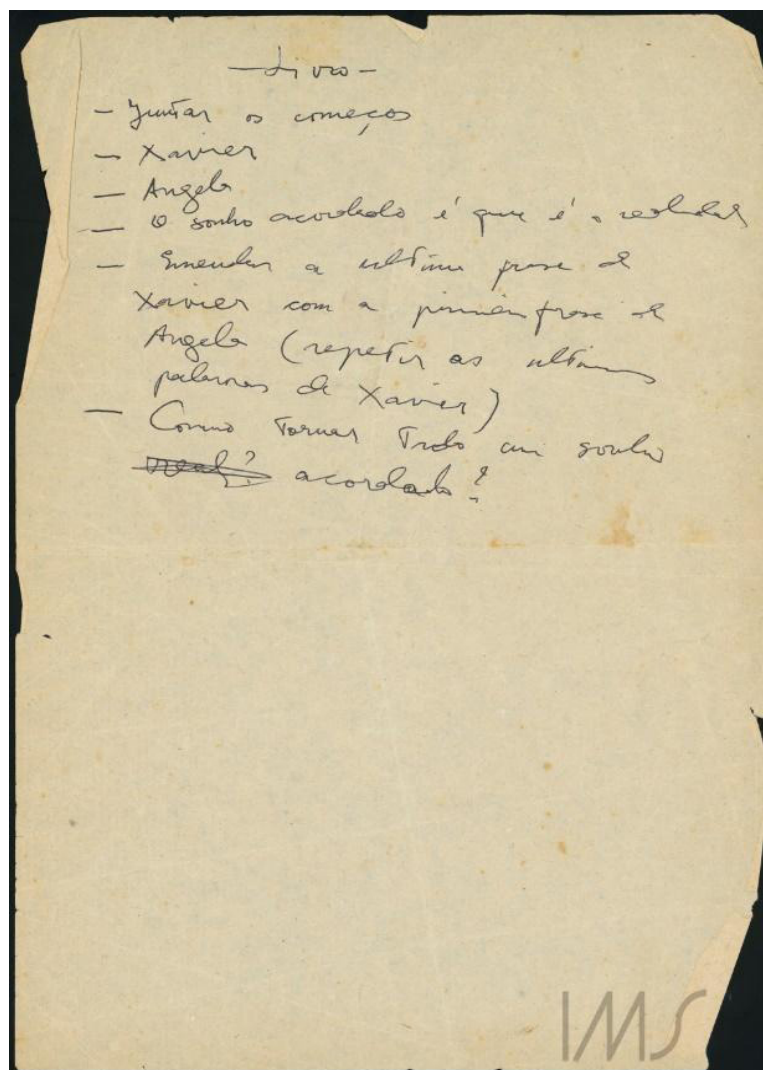 - Livro -
- Juntar os começos
- Xavier
- Angela
- O sonho acordado é que é a realidade
- Emendar a ultima frase de
Xavier com a primeira frase de
Angela (repetir as ultimas
palavras de Xavier)
- Como tornar tudo um sonho
real? acordado?
IMS